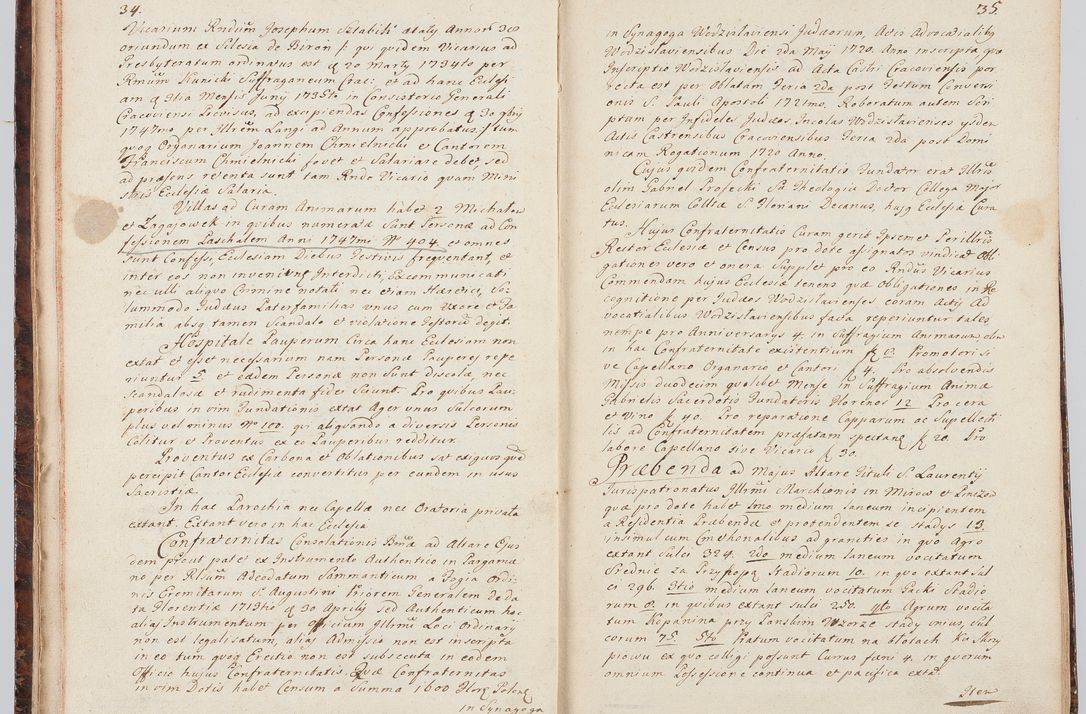 34.
Vicarium Rndum Josephum Sztabik ataty Annor 30
oriundum ex Silesia de Biron qui quidem Vicarius ad
Presbyteratum ordinatus est 20 Marty 1734to per
Rmum Kunicki Suffraganeum Crac: et ad hanc Eclesi
am Mensis Juny 1735to in Consistorio Generali
Cracoviensi Provisus, ad excipiendas Confessiones 30 9bris
1747mo per Ulrem Langi ad Annum approbatus, tum
quoq Organarium Joannem Chmielnicki et Cantorem
Franciscum Chmielnicki fovet et Salariare debet, sed
ad præsens retenta sunt tam Rndo Vicario quam Mini
stris Eclesiæ Salaria.
Villas ad Curam Animarum habet 2 Michałow
et Zagajowek in quibus numerata Sunt Personæ ad Con
fessionem Paschalem Anni 1747mi No 404. et omnes
Sunt Confess, Eclesiam Diebus Festivis frequentant, et
inter eos non inveniunt Interdicti, Excommunicati
nec ulli aliquo Crimine notati nec etiam Hæretici, so:
lummodo Judæus Paterfamilias unus cum Uxore et Fa
milia absq tamen Scandalo et violatione Festorum degit.
Hospitale Pauperum Circa hanc Eclesiam non
extat et esset necessarium nam Personæ Pauperes repe
riuntur 5. et eædem Personæ non Sunt Discolæ, nec
Scandalosæ et rudimenta fidei Sciunt. Pro quibus Pau
peribus in vim Fundationis extat Ager unus Sulcorum
plus vel minus No 100. qui aliquando a diversis Personis
Colitur et Proventus ex eo Pauperibus redditur.
Proventus ex Carbona et Oblationibus sat exiguus quem
percipit Cantor Eclesiæ convertitur per eundem in usus
Sacristiæ.
In hac Parochia nec Capellæ nec Oratoria privata
extant. Extant vero in hac Eclesia
Confraternitas Consolationis ad Altare Ejus
dem prout patet ex Instrumento Authentico in Pargame
no per Rlsum Adeodatum Sammanticum a Fogia Ordi
nis Eremitarum S. Augustini Priorem Generalem de da
ta Florentiæ 1713tio 30 Aprilis sed Authenticum hoc
alias Instrumentum per Officium Illrmi Loci Ordinarij
non est legalisatum, alias Admissio non est inscripta
in eo tum quoq Erectio non est subsecuta in eodem
Officio hujus Confraternitatis. Quæ Confraternitas
in vim Dotis habet Censum a Summa 1600 Flore Polone
in Synagoga
35.
in Synagoga Wodzislaviensi Judæorum, Actis Advocatialibg
Wodzislaviensibus Die 2da Maij 1720. Anno inscripta quæ
Inscriptio Wodzislaviensis ad Acta Castri Cracoviensis por
recta est per Oblatam Feria 2da post Festum Conversi
onis S. Pauli Apostoli 1721mo. Roboratum autem Scri
ptum per Infideles Judæos Incolas Wodzislavienses ysdem
Actis Castrensibus Cracoviensibus Feria 2da post Domi
nicam Rogationum 1720 Anno.
Cujus quidem Confraternitatis Fundator erat Illris
olim Gabriel Prosecki Sæ Theologiæ Doctor Collega Major
Ecclesiarum Colliæ S. Floriani Decanus, hujq Eclesiæ Cura
tus.
Hujus Confraternitatis Curam gerit Ipsemet Perillris
Rector Eclesiæ et Census pro dote assignatos vindicat Obli
gationes vero et onera Supplet pro eo Rndus Vicarius
Commendam hujus Eclesiæ tenens quæ Obligationes in Re
cognitione per Judæos Wodzislavienses coram Actis Ad
vocatialibus Wodzislaviensibus facta reperiuntur tales
nempe pro Anniversarys 4. in Suffragium Animarum olim
in hac Confraternitate existentium f 8. Promotori si
ve Capellano Organario et Cantori f 4. Pro absolvendis
Missis duodecim quolibet Mense in Suffragium Animæ
Gabrielis Sacerdotis Fundatoris Florenos 12 Pro cera
et Vino f 40. Pro reparatione Capparum ac Supellecti
lis ad Confraternitatem præfatam spectant f 20. Pro
labore Capellano sive Vicario f 30.
Præbenda ad Majus Altare Tituli S. Laurentij
Jurispatronatus Illrmi Marchionis in Mirow et Pinczow
quæ pro dote habet 1mo medium laneum incipientem
a Residentia Præbendæ et protendentem se stadys 13.
insimul cum Cmethonalibus ad granities in quo Agro
extant Sulci 324. 2do medium laneum vocitatum
Srednie za Przykopą Stadiorum 10. in quo extant Sul
ci 296. 3tio medium laneum vocitatum Packi Stadio
rum 8. in quibus extant sulci 250. 4to Agrum vocita
tum Kopanina przy Panskim Wzorze stady unius, Sul
corum 75. 5to Pratum vocitatum na błotach Ku Skrzy
piowu ex quo colligi possunt Currus fæni 4. in quorum
omnium Possessione continua et pacifica exta.
Item